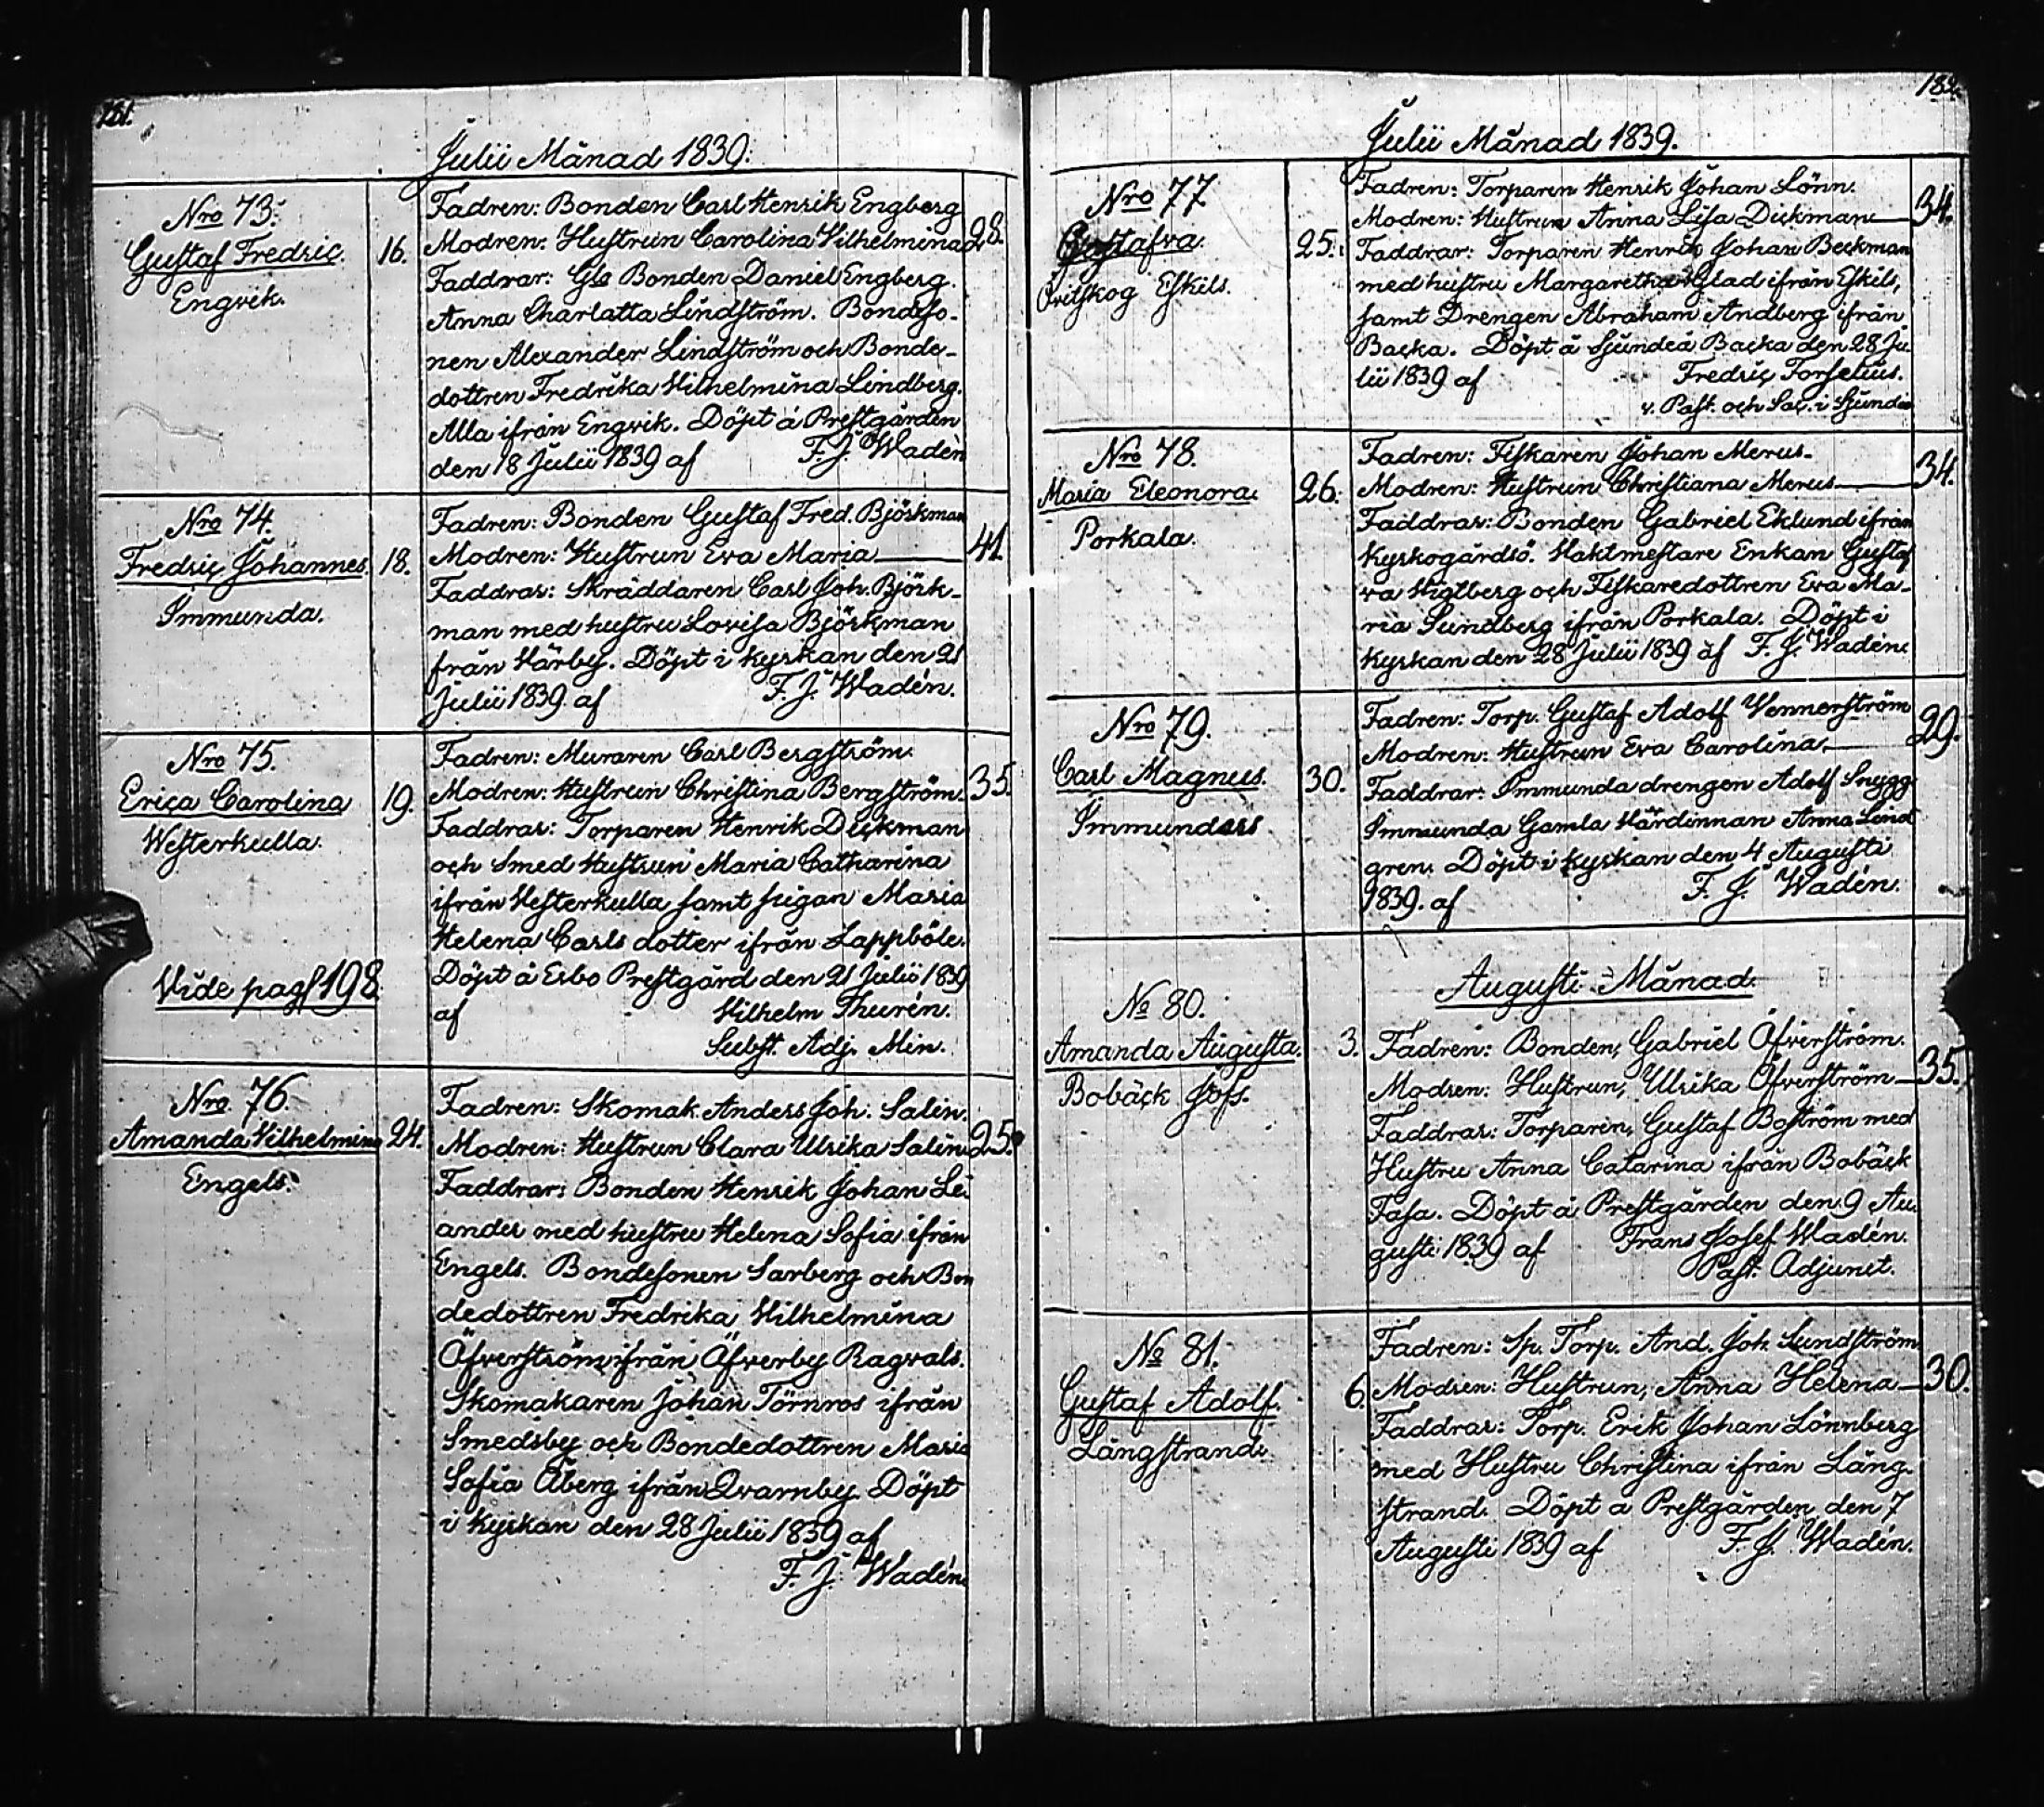 181.
Julii Månad 1839.
Nro 73.
Gustaf Fredric.
Engvik.
16.
Fadren: Bonden Carl Henrik Engberg
Modren: Hustrun Carolina Vilhelmina
28.
Faddrar: Gla Bonden Daniel Engberg.
Anna Charlatta Lindström. Bondeso-
nen Alexander Lindström och Bonde-
dottren Fredrika Vilhelmina Lindberg.
Alla ifrån Engvik. Döpt å Prestgården
den 18 Julii 1839 af F. J. Wadén
Nro 74.
Fredric Johannes.
Immunda.
18.
Fadren: Bonden Gustaf Fred. Björkman
Modren: Hustrun Eva Maria
41.
Faddrar: Skräddaren Carl Joh. Björk-
man med hustru Lovisa Björkman
från Härby. Döpt i kyrkan den 21
Julii 1839 af F. J. Wadén.
Nro 75.
Erica Carolina
Westerkulla.
19.
Vide pag 198
Fadren: Muraren Carl Bergström.
Modren: Hustrun Christina Bergström.
35.
Faddrar: Torparen Henrik Dickman
och Smed Hustrun Maria Catharina
ifrån Vesterkulla samt pigan Maria
Helena Carls dotter ifrån Lappböle.
Döpt å Esbo Prestgård den 21 Julii 1839
af Vilhelm Thurén.
Subst. Adj. Min.
Nro. 76.
Amanda Vilhelmina
Engels.
24.
Fadren: Skomak. Anders Joh. Salin.
Modren: Hustrun Clara Ulrika Salin
25.
Faddrar: Bonden Henrik Johan Le-
ander med hustru Helena Sofia ifrån
Engels. Bondesonen Sarberg och Bon
dedottren Fredrika Vilhelmina
Öfverström ifrån Öfverby Ragvals.
Skomakaren Johan Törnros ifrån
Smedsby och Bondedottren Maria
Sofia Åberg ifrån Qvarnby. Döpt
i kyrkan den 28 Julii 1839 af
F. J. Wadén.
182.
Julii Månad 1839.
Nro 77.
Gustafva.
Övitskog Eskils.
25.
Fadren: Torparen Henrik Johan Lönn.
Modren: Hustrun Anna Lisa Dickman
34.
Faddrar: Torparen Henrik Johan Beckman
med hustru Margaretha Glad ifrån Eskils,
samt Drengen Abraham Andberg ifrån
Backa. Döpt å Sjundeå Backa den 28 Ju-
lii 1839 af Fredric Forselius.
v. Past. och Sac. i Sjundeå
Nro 78.
Maria Eleonora.
Porkala.
26.
Fadren: Fiskaren Johan Merus.
Modren: Hustrun Christiana Merus
34.
Faddrar: Bonden Gabriel Eklund ifrån
Kyrkogårdsö. Vaktmestare Enkan Gustaf
va Vigtberg och Fiskaredottren Eva Ma-
ria Sundberg ifrån Porkala. Döpt i
kyrkan den 28 Julii 1839 af F. J. Wadén.
Nro 79.
Carl Magnus.
Immundars
30.
Fadren: Torp. Gustaf Adolf Vennerström
Modren: Hustrun Eva Carolina.
29.
Faddrar: Immunda drengen Adolf Snygg
Immunda Gamla Värdinnan Anna Lind
gren. Döpt i kyrkan den 4 Augusti
1839. af F. J. Wadén.
Augusti Månad.
No 80.
Amanda Augusta.
Bobäck Jofs.
3.
Fadren: Bonden, Gabriel Öfverström.
Modren: Hustrun, Ulrika Öfverström
35.
Faddrar: Torparen, Gustaf Boström med
Hustru Anna Catarina ifrån Bobäck
Fasa. Döpt å Prestgården den 9 Au-
gusti 1839 af Frans Josef Wadén.
Past. Adjunct.
No 81.
Gustaf Adolf.
Långstrand.
6.
Fadren: Sp. Torp. And. Joh. Lundström
Modren: Hustrun, Anna Helena
30.
Faddrar: Torp. Erik Johan Lönnberg
med Hustru Christina ifrån Lång-
strand. Döpt a Prestgården den 7
Augusti 1839 af F. J. Wadén.